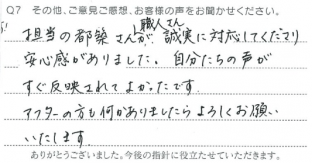 Q7 その他、ご意見ご感想、お客様の声をお聞かせください。
職人さん
担当の都築さんが、誠実に対応してくださり
安心感がありました。自分たちの声が
すぐ反映されてよかったです。
アフターの方も何かありましたらよろしくお願い
いたします。
ありがとうございました。今後の指針に役立たせていただきます。